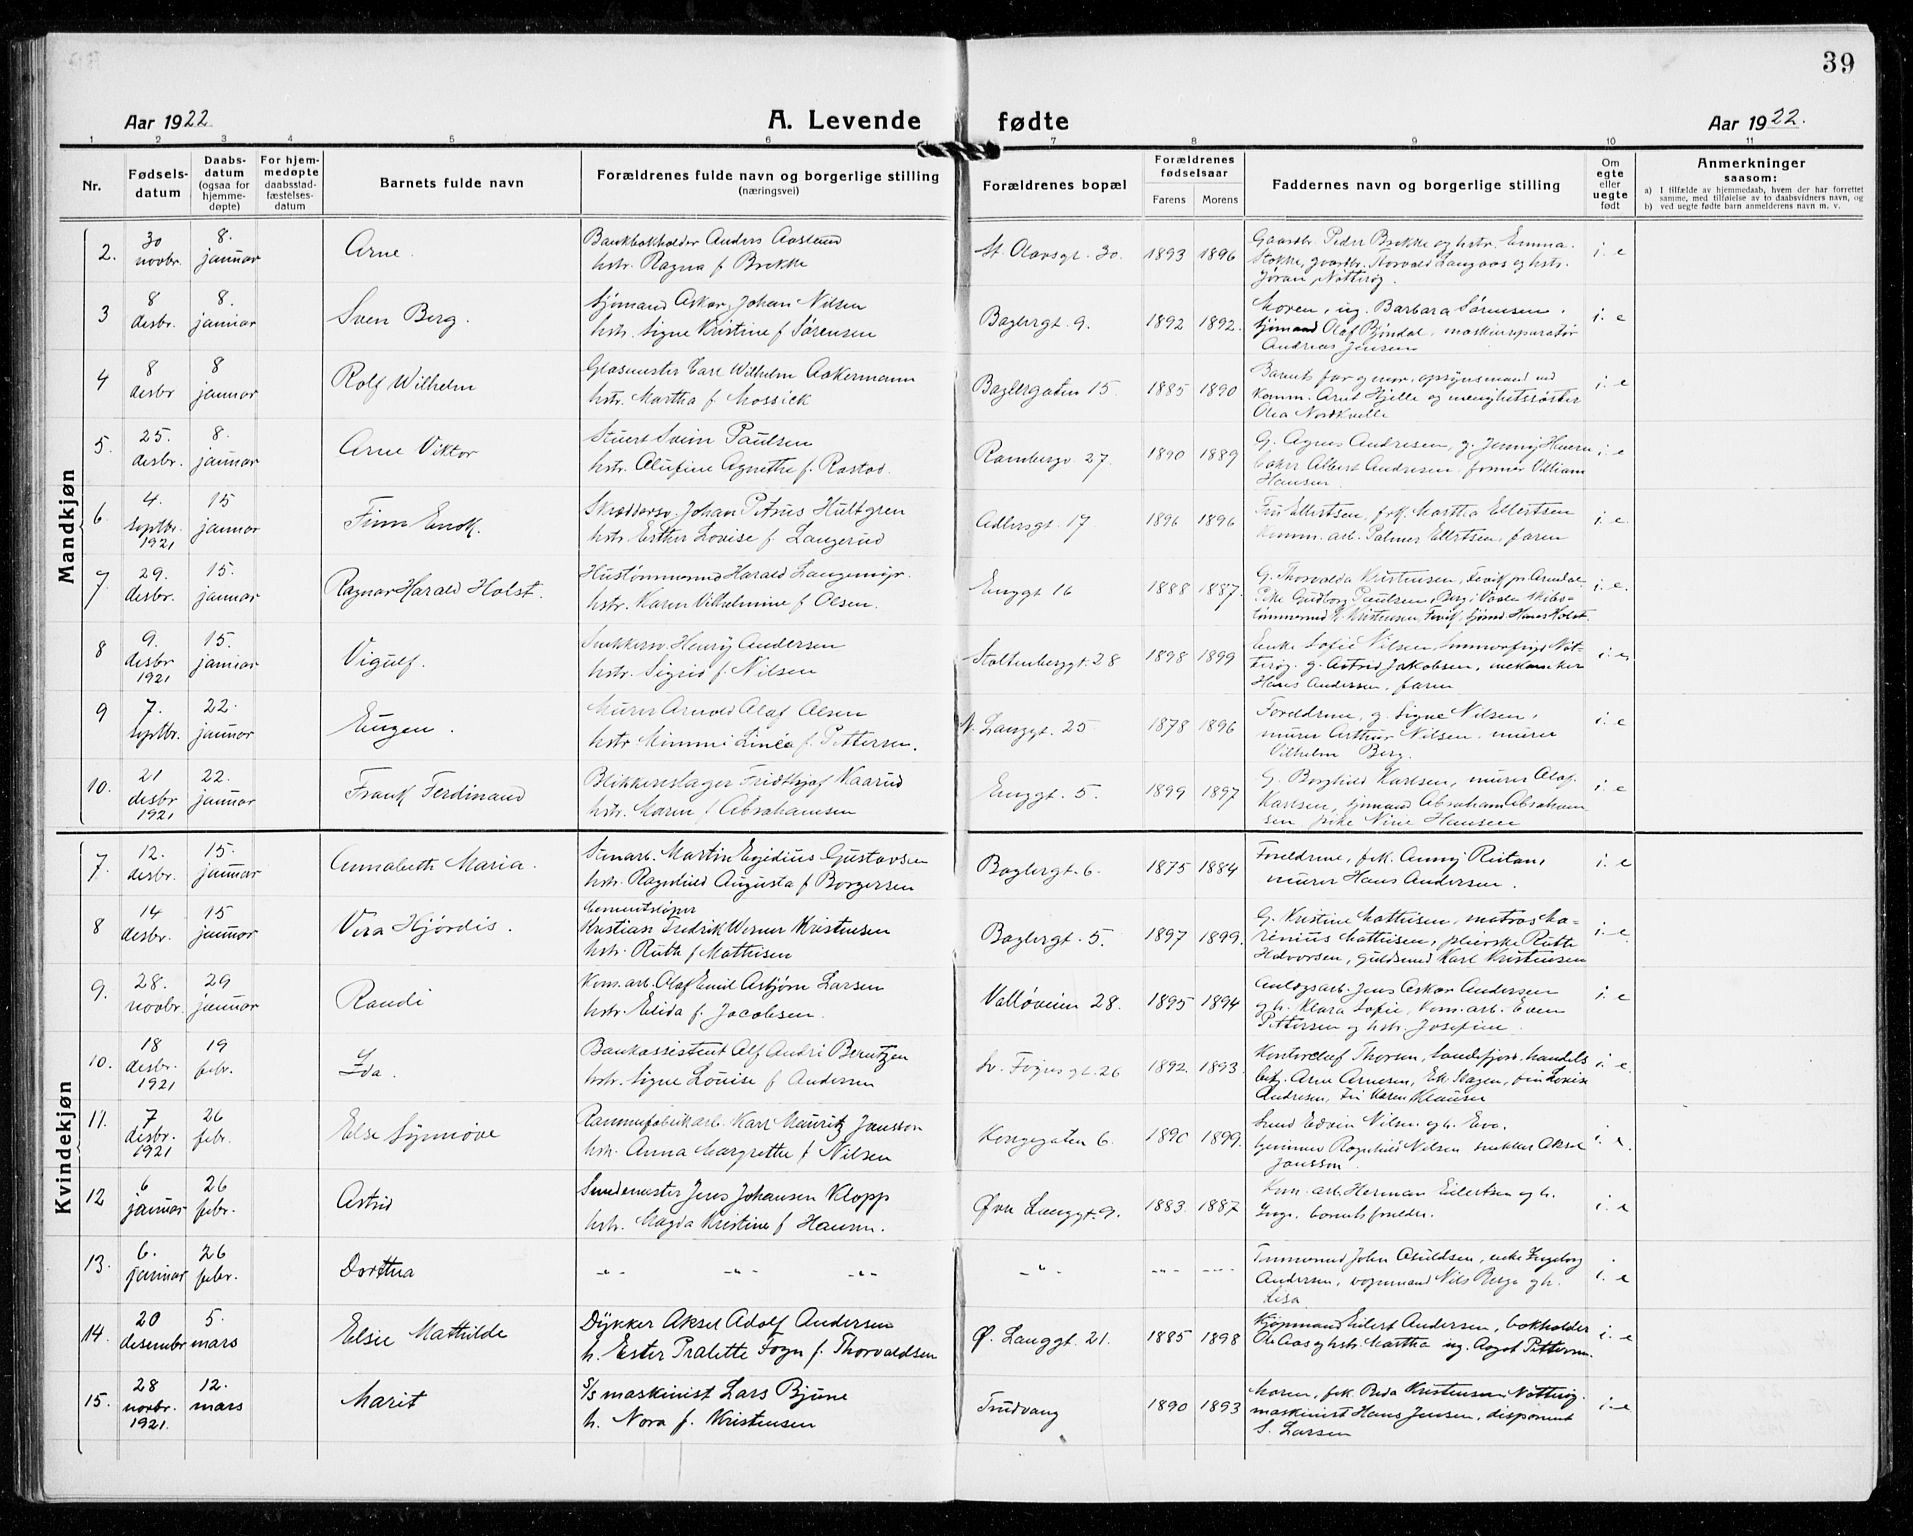 39
Aar 1922
A. Levende fødte
Aar 1922.
1 2 3 4 5 6 7 8 9 10 11
Nr.
Fødsels-
datum
Daabs-
datum
(ogsaa for
hjemme-
døpte)
For hjem-
medøpte
daabsstad-
fæstelses-
datum
Barnets fulde navn
Forældrenes fulde navn og borgerlige stilling
(næringsvei)
Forældrenes bopæl
Forældrenes
fødselsaar
Farens Morens
Faddernes navn og borgerlige stilling
Om
egte
eller
uegte
født
Anmerkninger
saasom:
a) I tilfælde av hjemmedaab, hvem der har forrettet
samme, med tilføielse av to daabsvidners navn, og
b) ved uegte fødte barn anmelderens navn m. v.
Mandkjøn
2. 30 novbr. 8. januar Arne.
Bankbokholder Anders Aaslund
hstr. Ragna f. Brekke
St. Olavsgt. 30. 1893 1896
Gaardbr. Peder Brekke og hstr. Emma
Stokke, gaardbr. Torvald Langaas og hstr.
Jøran, Nøtterøy. i. e
3 8 desbr. 8. januar Sven Berg.
Sjømand Oskar Johan Nilsen
hstr. Signe Kristine f Sørensen
Baglergt. 9. 1892 1892.
Moren, ug. Barbara Sørensen,
sjømand Olaf Bjøndal, maskinreparatør
Andreas Jensen i. e
4 8 desbr 8 januar Rolf Wilhelm
Glasmester Carl Wilhelm Ackermann
hstr. Martha f. Mossick
Baglergaten 15. 1885 1890
Barnets far og mor, opsynsmand ved
komm. Arnt Hjelle og menighetssøster
Olea Nordkvelle i. e
5. 25. desbr. 8. januar Arne Viktor
Stuert Svein Paulsen
hstr. Olufine Agnethe f. Rostad.
Rambergv. 27. 1890 1889
G. Agnes Andresen, g. Jenny
Albert Andresen, formèr Villiam
Hansen i. e
6 4. septbr. 1921 15 januar Finn Enok.
Skræddersv. Johan Petrus Hultgren
hstr. Esther Lovise f. Langerud
Adlersgt. 17 1896 1896
Fru Ellertsen, frk. Martha Ellertsen
Komm. arb. Palmer Ellertsen, faren i. e.
7. 29. desbr. 15. januar Ragnar Harald Holst.
Hustømmermd Harald Langemyr.
hstr. Karen Vilhelmine f Olsen.
Enggt 16 1888 1887.
G. Thorvalda Kristensen, Fevik pr. Arendal
Pike Gudborg Paulsen, Berg i Vaale, skibs-
tømmermd K. Kristensen, Fevik, sjømd Hans Holst. i. e.
8 9. desbr 1921 15. januar Vigulf.
Snekkersv. Henrÿ Andersen
hstr. Sigrid f. Nilsen
Stoltenberggt. 28 1898 1899
Enke Sofie Nilsen, Nøt-
terøy. g. Astrid Jakobsen, mekaniker
Hans Andersen, faren i. e.
9 7. septbr. 22. januar Eugen.
Murer Arnold Olaf Olsen
hstr Mimmi Linéa f. Pettersen.
N. Langgt. 25 1878 1896
Foreldrene, g. Signe Nilsen,
murer Arthur Nilsen, murer
Vilhelm Berg. i. e
10. 21 desbr 1921 22. januar Frank Ferdinand
Blikkenslager Fridthjof Naarud
hstr. Maren f Abrahamsen
Enggt. 5. 1899 1897
G. Borghild Karlsen, murer Olaf
Karlsen, sjømand Abraham Abraham
sen, pike Nine Hansen i. e
Kvindekjøn
7. 12. desbr. 15. januar Annabeth Maria.
Stenarb. Martin Egidius Gustavsen
hstr. Ragnhild Augusta f Borgersen
Baglergt. 6. 1875 1884
Foreldrene, frk. Anny Ristan,
murer Hans Andersen. i. e
8 14 desbr. 15 januar Vera Hjørdis.
Cementstøper
Kristian Fredrik Werner Kristensen
hstr. Ruth f Mathisen
Baglergt. 5. 1897 1899.
G. Kristine Mathisen, matros Ma-
renius Mathisen, pleierske Ruth
Halvorsen, guldsmed Karl Kristensen i. e.
9. 28. novbr. 29 januar Randi
Kom. arb. Olaf Emil Asbjørn Larsen
hstr. Elida f. Jacobsen.
Valløveien 28. 1895 1894
Anlægsarb. Jens Oskar Andersen
og h. Klara Sofie, kom. arb. Even
Pettersen og hstr. Josefine. i. e
10. 18 desbr. 1921 19 febr. Ida.
Bankassistent Alf André Berntzen
hstr. Signe Louise f Andersen
Sv. Foynsgt. 26 1892. 1893.
Kontorchef Thorsen, Sandefjord, handels
betj. Arne Arnesen, Ek Slagen, frk Lovise
Andresen, Fru Karen Klausen i. e.
11. 7 desbr. 1921 26 febr. Else Synnøve
Rammefabrikarb. Karl Mauritz Jansson
hstr. Anna Margrethe f Nilsen
Kongegaten 6. 1890 1899.
Smed Edvin Nilsen og h. Eva.
Ragnhild Nilsen snekker Aksel
Jansson. i. e.
12 6 januar 26 febr. Astrid
Smedemester Jens Johansen Klopp
hstr. Magda Kristine f Hansen.
Øvre Langgt. 9. 1883. 1887
Kom. arb. Herman Eilertsen og h.
Inga, barnets forældre. i. e
13. 6. januar 26 febr. Dorthea
-"- -"- -"- -"- -"- -"-
Tømmermd John Asuldsen, enke Ingeborg
Andersen, vognmand Nils Berge og h.
Lisa i. e
14. 20 desember 5. mars Elsie Mathilde
Dykker Aksel Adolf Andersen
h. Ester Pralette Fogn f. Thorvaldsen
Ø. Langgt. 21. 1885 1898
Kjøpmand Eilert Andersen, bokholder
Ole Aas og hstr. Martha ug. Aagot Pettersen. i. e
15. 28 novbr. 1921. 12. mars Marit
S/S maskinist Lars Bjune
h. Nora f. Kristensen
Trudvang 1890 1893
Moren, frk. Beda Kristensen, Nøtterøy.
maskinist Hans Jensen, disponent
S. Larsen i. e